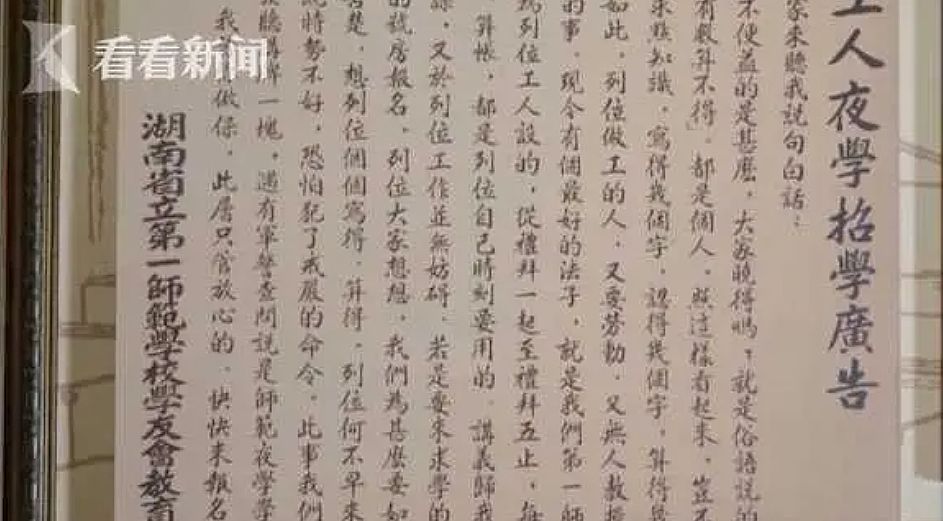 看看新闻
工人夜學招學廣告
家來聽我說句白話：
不便益的是甚麼，大家曉得嗎，就是俗語說的
有數算不得。都是個人，照這樣看起來，豈不
求點知識，寫得幾個字，認得幾個字，算得幾
如此，列位做工的人，又要勞動，又無人教授
的事。現今有個最好的法子，就是我們第一師
列位工人設的，從禮拜一起至禮拜五止，每
算帳，都是列位自己時刻要用的。講義歸我
又於列位工作並無妨碍。若是要來求學的
的號房報名。列位大家想想，我們為甚麼要如
想列位個個寫得，算得，列位何不早來
時勢不好，恐怕犯了戒嚴的命令。此事我們
聽講牌一塊，遇有軍警查問說是師範夜學學
做保，此層只管放心的。快快來報名
湖南省立第一師範學校學友會教育